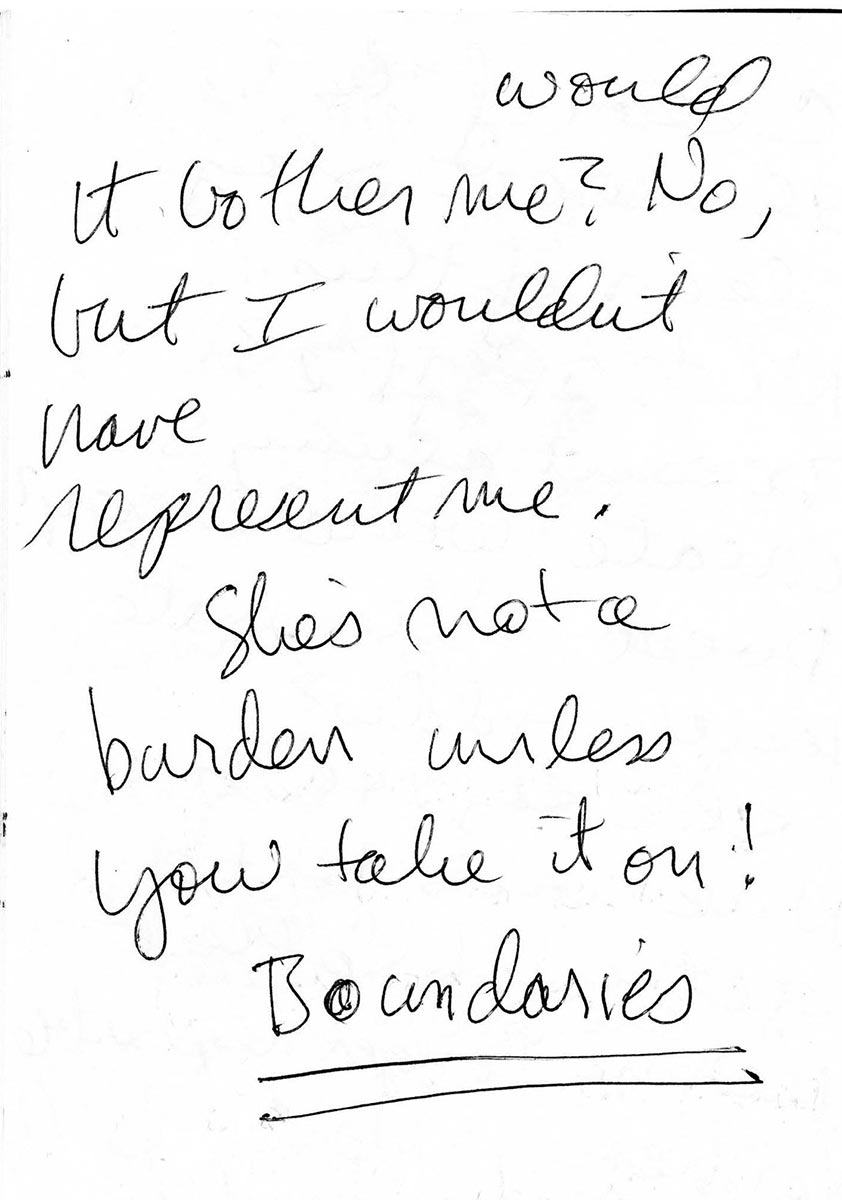 would
it bother me? No,
but I wouldn't
have
represent me.
She's not a
burden unless
you take it on!
Boundaries